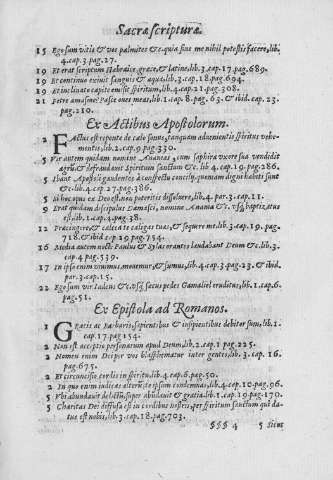 Sacræ scripturæ
15 Ego sum vitis & vos palmites &c. quia sine me nihil potestis facere, lib.
4. cap. 3. pag. 27.
19 Et erat scriptum Hebraice, græce, & latine, lib. 3. cap. 17. pag. 689.
19 Et continuo exiuit sanguis & aqua, lib. 3. cap. 18. pag. 694.
19 Et inclinato capite emisit spiritum, lib. 4. cap. 21. pag. 308.
21 Petre amas me? Pasce oues meas, lib. 1. cap. 8. pag. 63. & ibid. cap. 23.
pag. 210.
Ex Actibus Apostolorum.
2 Factus est repente de cælo sonus, tanquam aduenientis spiritus vehe-
mentis, lib. 2. cap. 9 pag. 330.
5 Vir autem quidam nomine Ananias, cum saphira vxore sua vendidit
agrũ, & defraudant Spiritum sanctum &c. lib. 4. cap. 19. pag. 286.
5 Ibant Apostoli gaudentes à conspectu concilij, quoniam digni habiti sunt
&c. lib. 4. cap. 27. pag. 386.
5 Si hoc opus ex Deo est, non poteritis dissoluere, lib. 4. par. 3. cap. 11.
9 Erat quidam discipulus Damasci, nomine Anania &c. vsq; baptizatus
est, lib. 1. cap. 4. pag. 38.
12 Præcingere, & calcea te caligas tuas, & sequere me, lib. 3. cap. 19. pag.
718. & ibid. cap. 19. pag. 754.
16 Media autem nocte Paulus & Sylas orantes laudabant Deum &c. lib. 3.
cap. 4. pag. 539.
17 In ipso enim viuimus, mouemur, & sumus, lib. 4. cap. 3. pag. 23. & ibid.
par. 3. cap. 15.
22 Ego sum vir Iudæus &c. vsq; secus pedes Gamaliel eruditus, lib. 1. cap. 6.
pag. 51.
Ex Epistola ad Romanos.
1 Græcis ac Barbaris, sapientibus & insipientibus debitor sum, lib. 1.
cap. 17. pag. 154.
2 Non est acceptio personarum apud Deum, lib. 2. cap. 1. pag. 225.
2 Nomen enim Dei per vos blasphematur inter gentes, lib. 3. cap. 16.
pag. 675.
2 Et circuncisio cordis in spiritu, lib. 4. cap. 6. pag. 50.
2 In quo enim iudicas alterum, te ipsum condemnas, lib. 4. cap. 10. pag. 96.
5 Vbi abundauit delictũ, super abũdauit & gratia, lib. 1. cap. 19. pag. 170.
5 Charitas Dei diffusa est in cordibus nostris, per spiritum sanctum qui da-
tus est nobis, lib. 3. cap. 18. pag. 703.
§§§ 4 5 Sicut